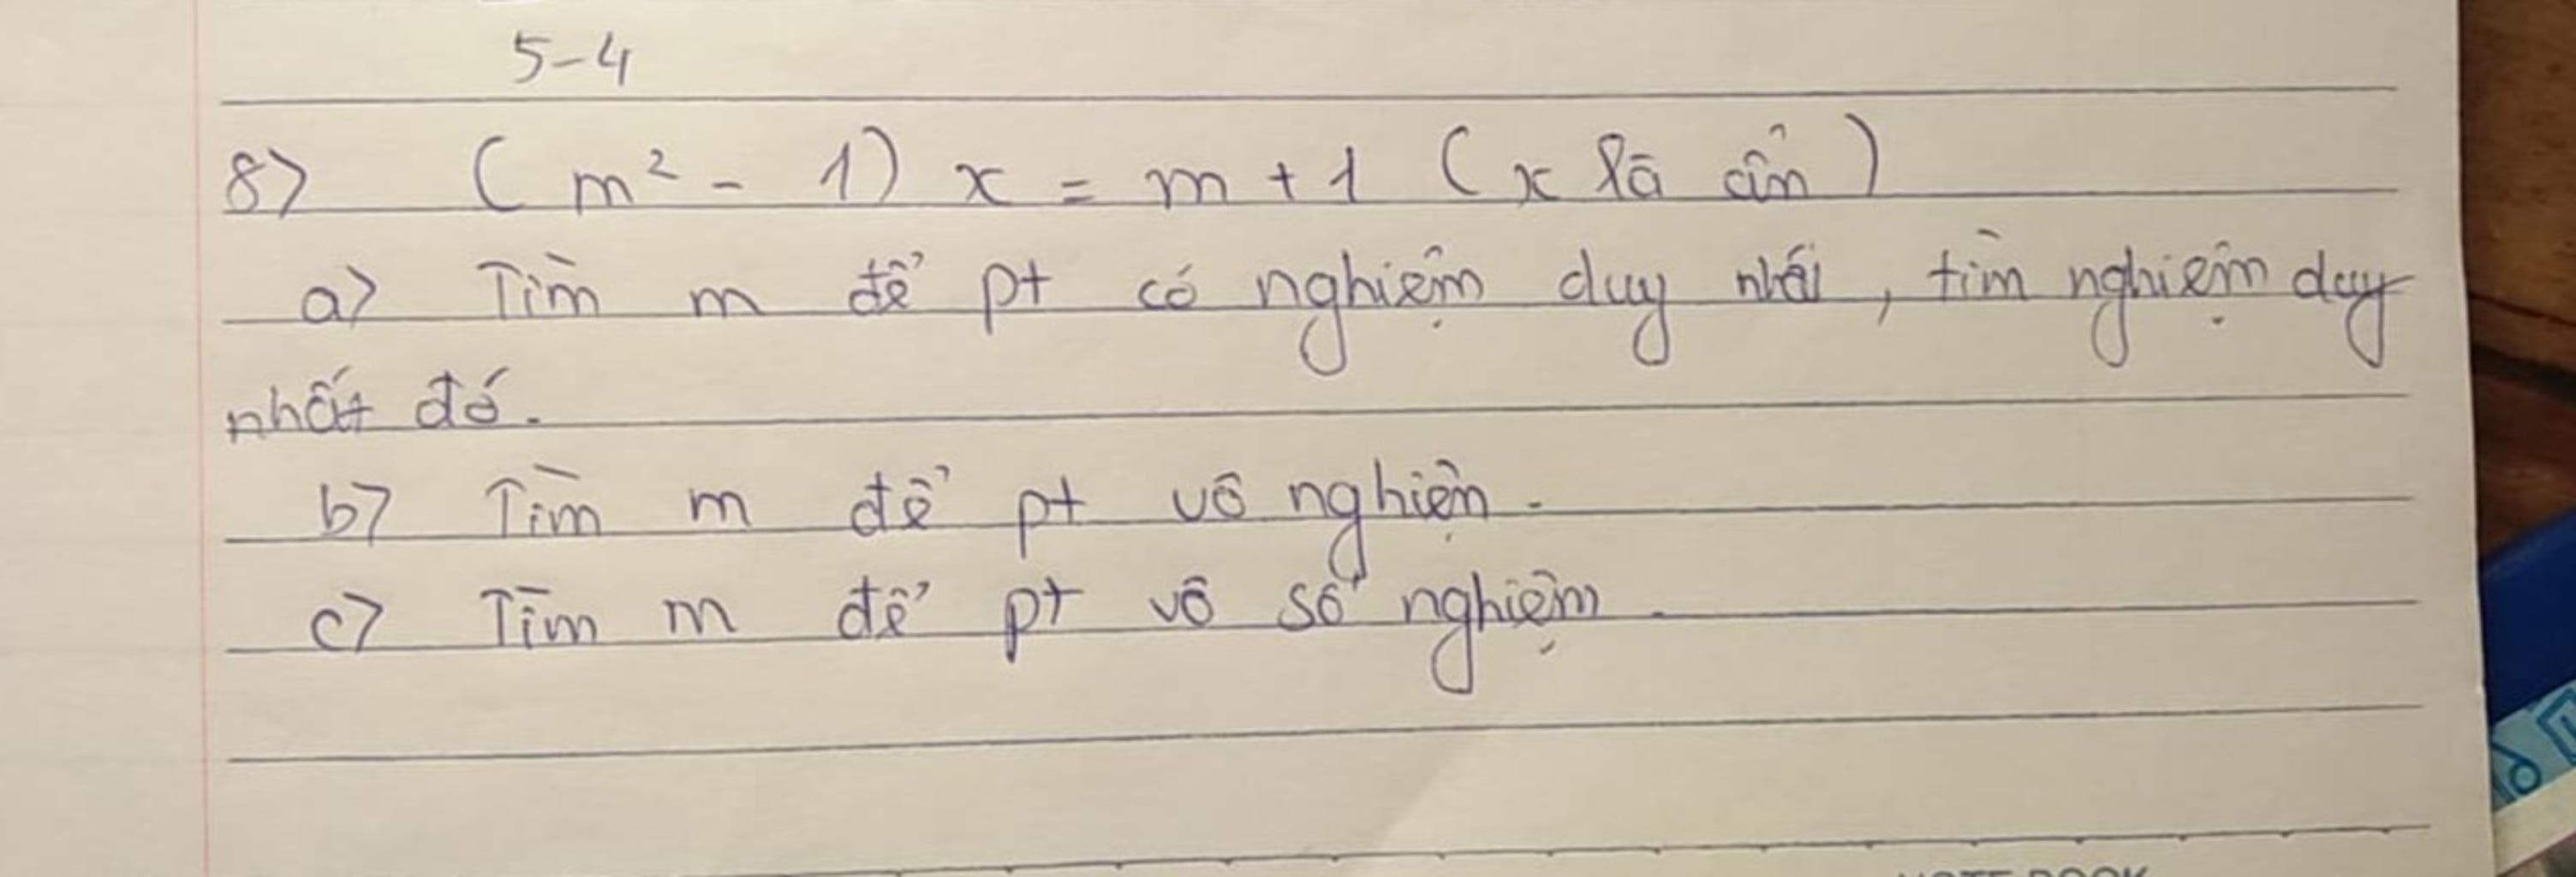 5-4
8> (m² - 1) x = m + 1 (x là ẩn)
a> Tìm m để pt có nghiệm duy nhất, tìm nghiệm duy
nhất đó.
b> Tìm m để pt vô nghiệm.
c> Tìm m để pt vô số nghiệm.